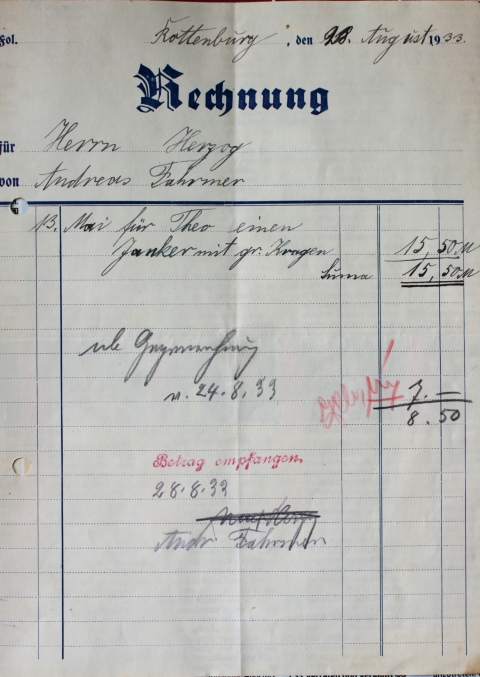 Fol.
Rottenburg, den 28. August 1933.
Rechnung
für Herrn Herzog
von Andreas Fahrner
13. Mai für Theo einen
Janker mit gr. Kragen 15,50 M
Suma 15,50 M
v. 24.8.33 7.—
8.50
Betrag empfangen.
28.8.33
Andr. Fahrner